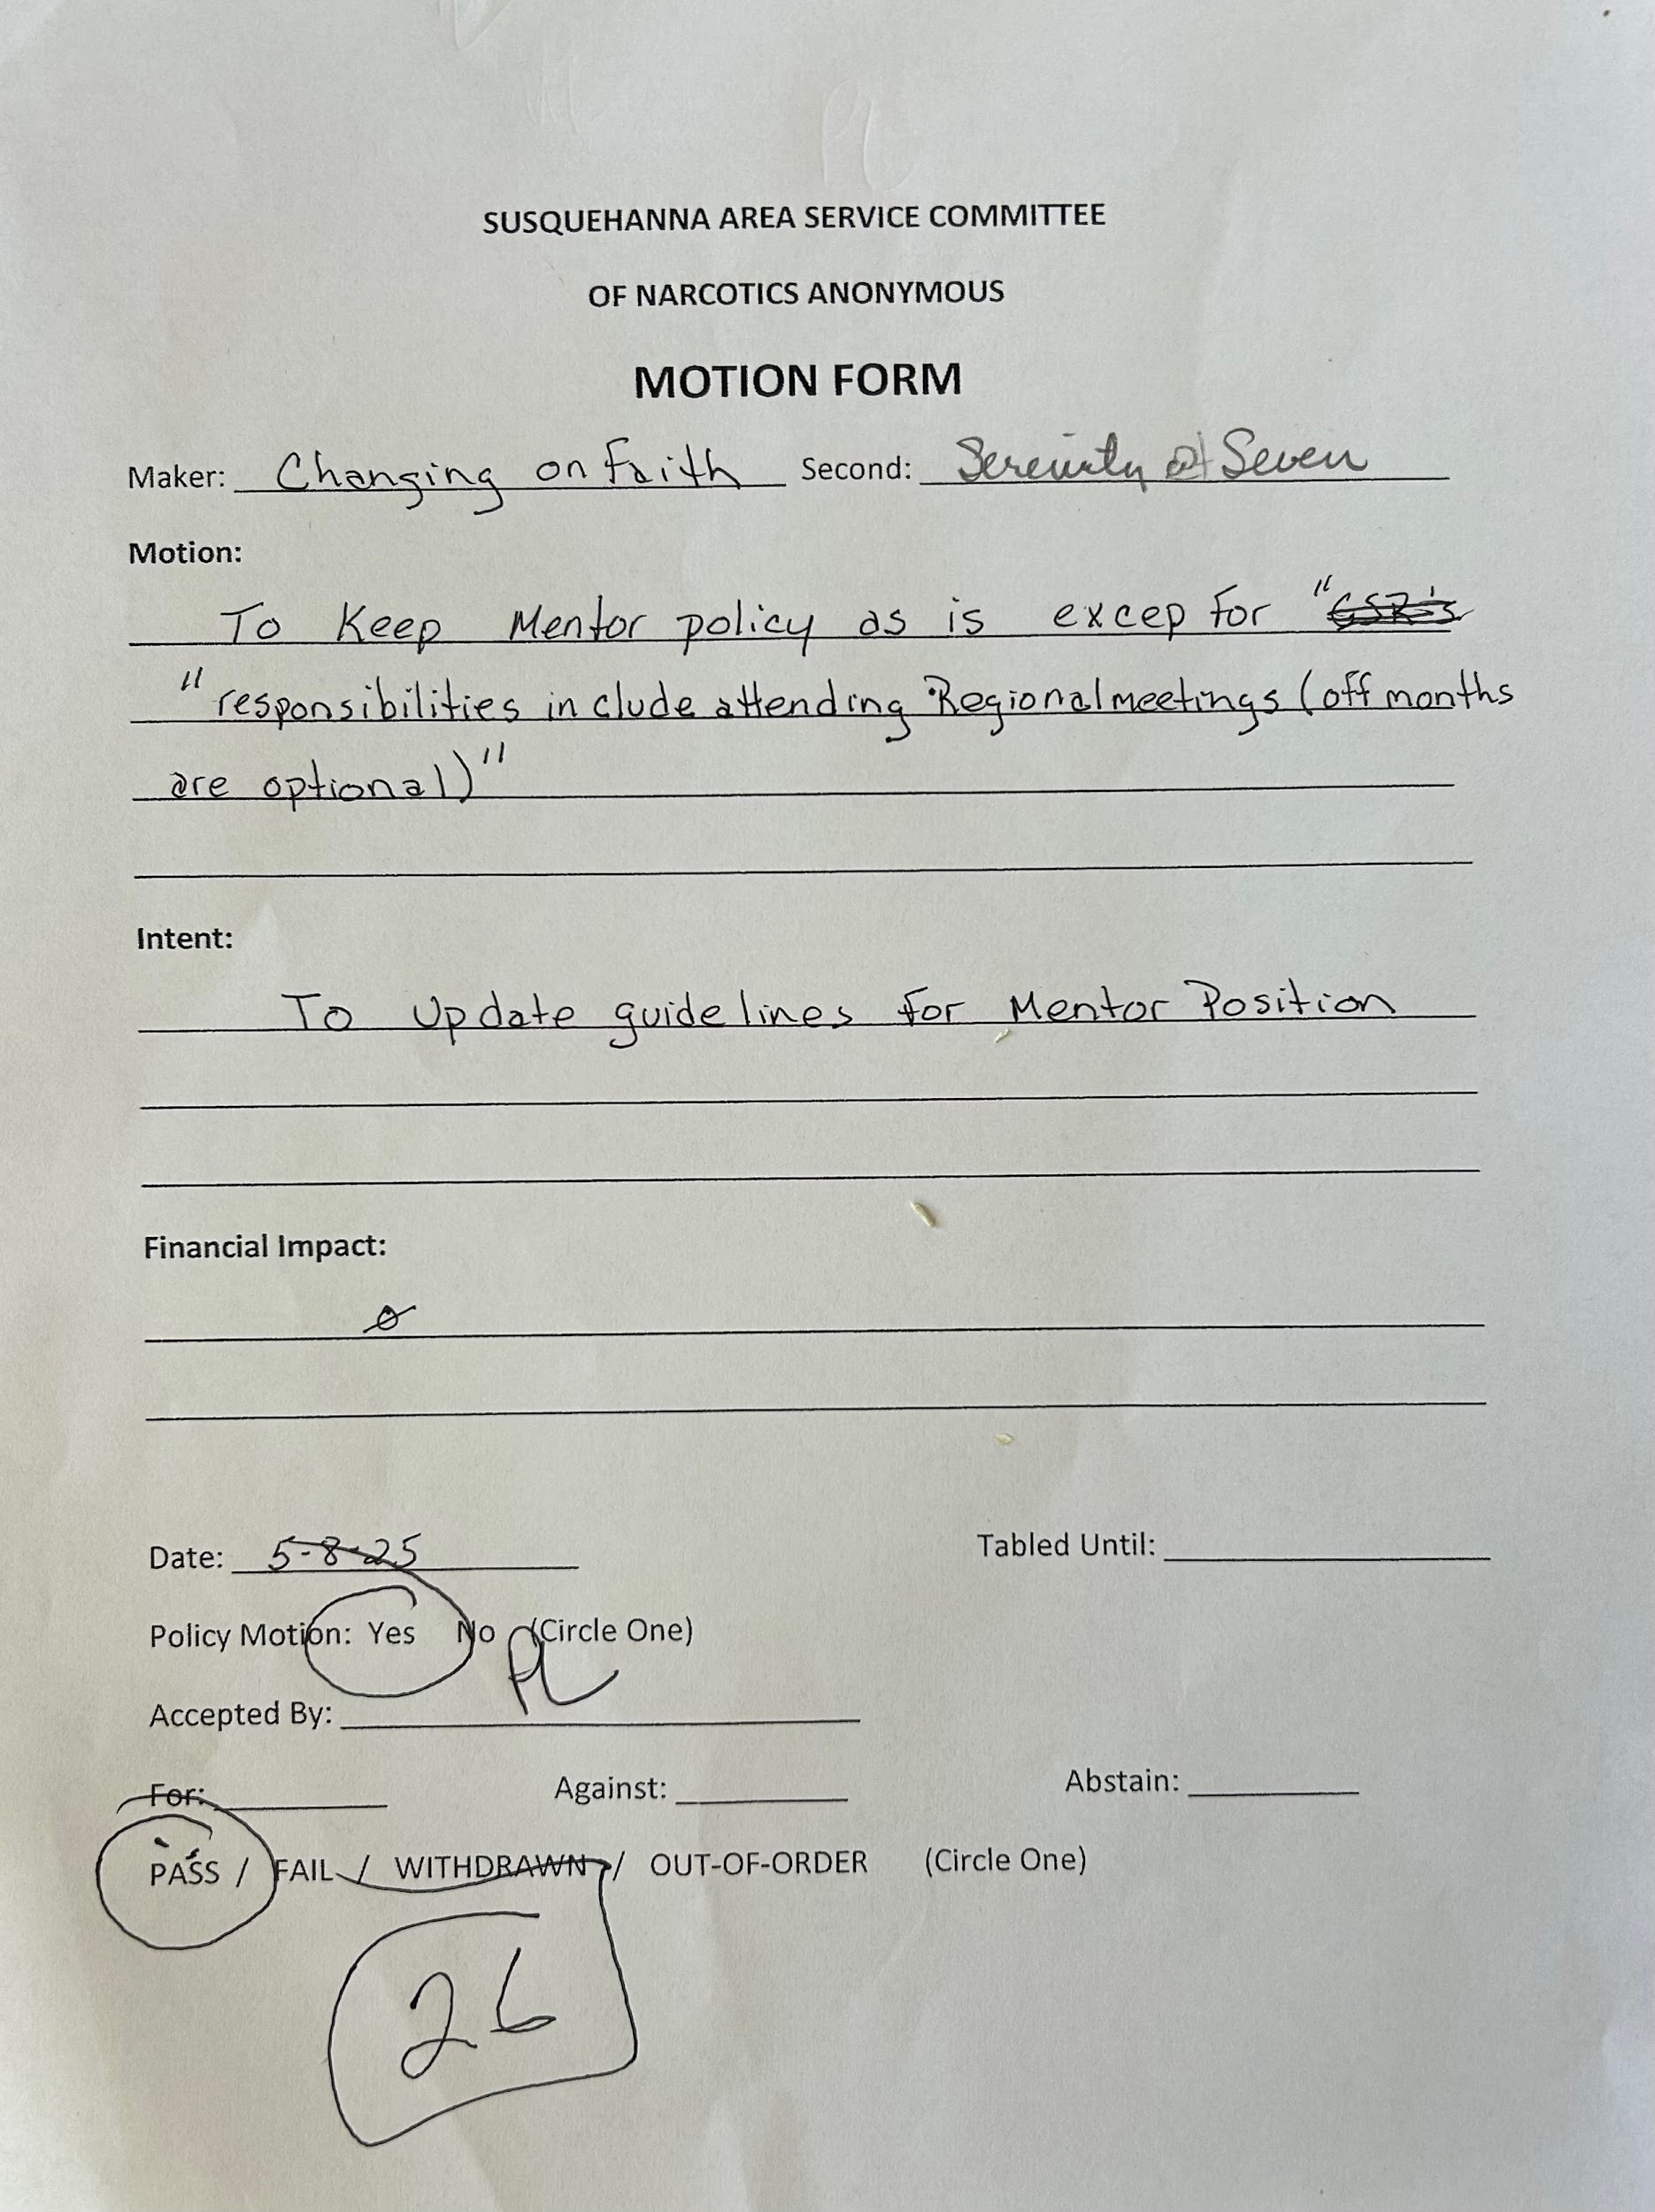 SUSQUEHANNA AREA SERVICE COMMITTEE
OF NARCOTICS ANONYMOUS
MOTION FORM
Maker: Changing on Faith Second: Serenity at Seven
Motion:
To Keep Mentor policy as is excep for "GSR's
"responsibilities include attending Regional meetings (off months
are optional)"
Intent:
To Update guidelines for Mentor Position
Financial Impact:
Ø
Date: 5-8-25 Tabled Until:
Policy Motion: Yes No (Circle One)
Accepted By: PL
For: Against: Abstain:
PASS / FAIL / WITHDRAWN / OUT-OF-ORDER (Circle One)
26